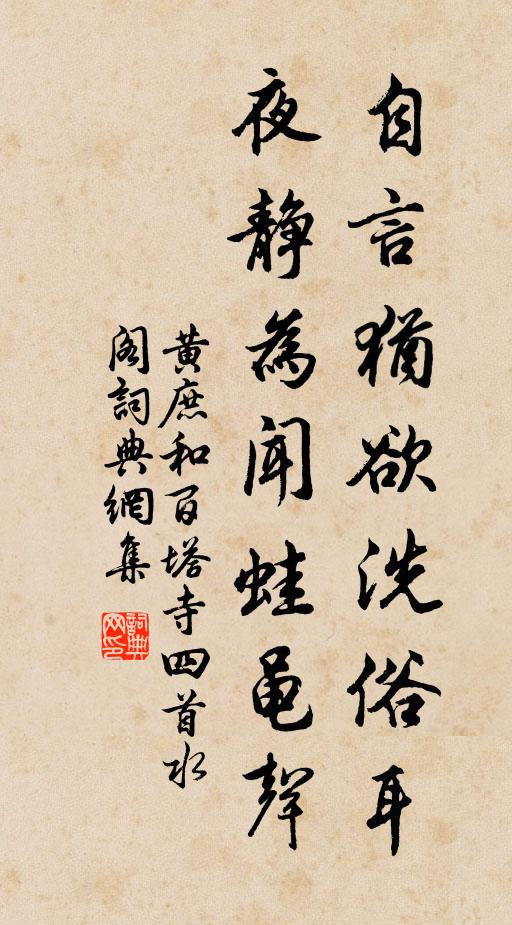 自言猶欲洗俗耳
夜靜為聞蛙黽聲
黃庶和百塔寺四首水
閣詞典網集
詞典網印